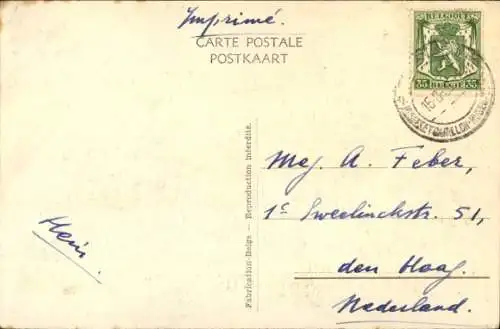 Imprimé.
CARTE POSTALE
POSTKAART
BELGIQUE
35 35
Fabrication-Belge — Reproduction interdite.
Mej. A. Feber,
1e Sweelinckstr. 51,
den Haag.
Nederland.
Hein.